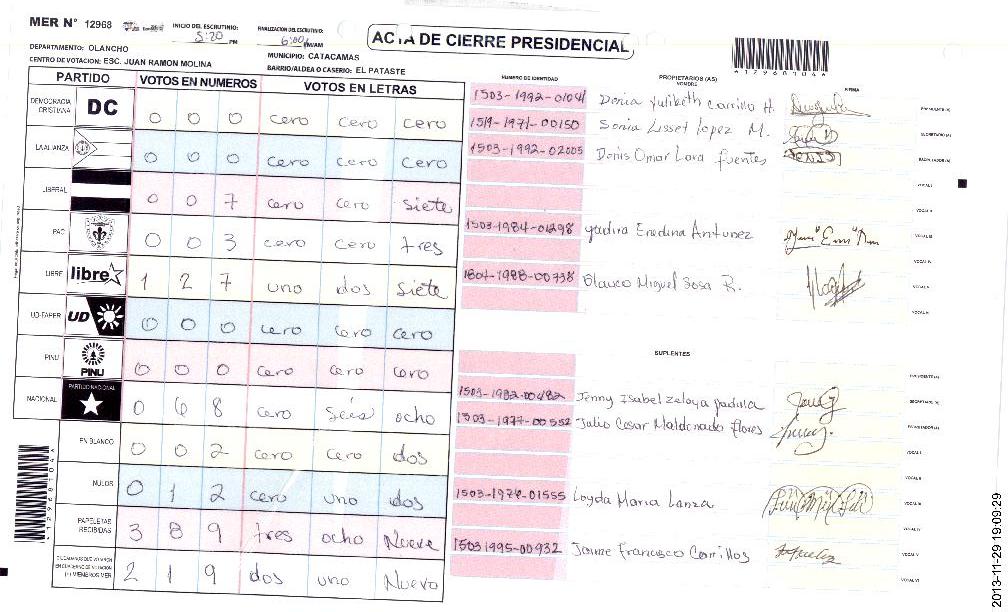 MER N° 12968
INICIO DEL ESCRUTINIO:
5:20 PM
FINALIZACION DEL ESCRUTINIO:
6:00 PM/AM
ACTA DE CIERRE PRESIDENCIAL
*12968104*
DEPARTAMENTO: OLANCHO
MUNICIPIO: CATACAMAS
CENTRO DE VOTACION: ESC. JUAN RAMON MOLINA
BARRIO/ALDEA O CASERIO: EL PATASTE
PARTIDO VOTOS EN NUMEROS VOTOS EN LETRAS
DEMOCRACIA CRISTIANA DC 0 0 0 cero cero cero
LA ALIANZA 0 0 0 cero cero cero
LIBERAL 0 0 7 cero cero siete
PAC 0 0 3 cero cero tres
LIBRE libre 1 2 7 uno dos siete
UD-FAPER UD 0 0 0 cero cero cero
PINU PINU 0 0 0 cero cero cero
NACIONAL PARTIDO NACIONAL 0 6 8 cero seis ocho
EN BLANCO 0 0 2 cero cero dos
NULOS 0 1 2 cero uno dos
PAPELETAS RECIBIDAS 3 8 9 tres ocho Nueve
CIUDADANOS QUE VOTARON EN CUADERNO DE VOTACION (+) MIEMBROS MER 2 1 9 dos uno Nuevo
NUMERO DE IDENTIDAD PROPIETARIOS (AS) NOMBRE FIRMA
1503-1992-01041 Dunia Yulibeth Carrillo H. PRESIDENTE (A)
1519-1971-00150 Sonia Lisset Lopez M. SECRETARIO (A)
1503-1992-02005 Denis Omar Lara fuentes ESCRUTADOR (A)
VOCAL I
VOCAL II
1503-1984-01298 Yadira Enedina Antunez VOCAL III
VOCAL IV
1807-1988-00738 Blanco Miguel Sosa R. VOCAL V
VOCAL VI
SUPLENTES
PRESIDENTE (A)
1503-1982-00482 Jenny Isabel Zelaya Padilla SECRETARIO (A)
1503-1977-00552 Julio Cesar Maldonado Flores ESCRUTADOR (A)
VOCAL I
VOCAL II
1503-1974-01555 Loyda Maria Lanza VOCAL III
VOCAL IV
1503 1995-00932 Jaime Francisco Carrillos VOCAL V
VOCAL VI
*12968104*
2013-11-29 19:09:29